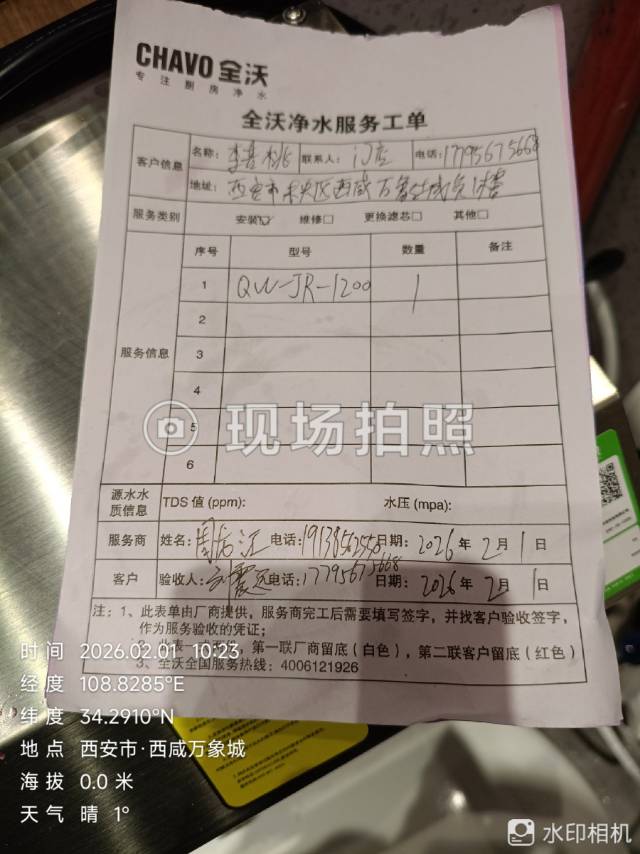 CHAVO 全沃
专注厨房净水
全沃净水服务工单
客户信息 名称: 联系人: 门店 电话: 17795675668
地址: 西安市未央区西咸万象城
服务类别 安装☑ 维修□ 更换滤芯□ 其他□
服务信息 序号 型号 数量 备注
1 QW-JR-1200 1
2
3
4
5
6
现场拍照
源水水质信息 TDS 值 (ppm): 水压 (mpa):
服务商 姓名: 电话: 日期: 2026 年 2 月 1 日
客户 验收人: 电话: 17795675668 日期: 2026 年 2 月 1 日
注: 1、此表单由厂商提供，服务商完工后需要填写签字，并找客户验收签字，
作为服务验收的凭证;
第一联厂商留底 (白色)，第二联客户留底 (红色)
3、全沃全国服务热线: 4006121926
时间 2026.02.01 10:23
经度 108.8285°E
纬度 34.2910°N
地点 西安市·西咸万象城
海拔 0.0 米
天气 晴 1°
水印相机